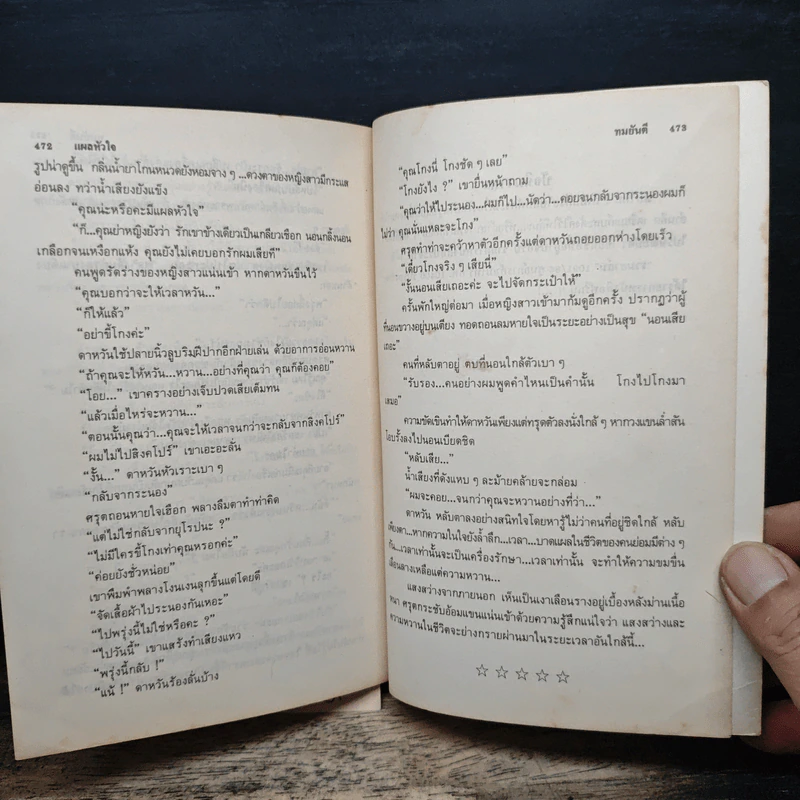 472 แผลหัวใจ
รูปน่าดูขึ้น กลิ่นน้ำยาโกนหนวดยังหอมจาง ๆ ...ดวงตาของหญิงสาวมีกระแส
อ่อนลง ทว่าน้ำเสียงยังแข็ง
“คุณน่ะหรือคะมีแผลหัวใจ”
“ก็...คุณย่าหญิงยังว่า รักเขาข้างเดียวเป็นเกลียวเชือก นอนกลิ้งนอน
เกลือกจนเหงือกแห้ง คุณยังไม่เคยบอกรักผมเสียที”
คนพูดรัดร่างของหญิงสาวแน่นเข้า หากดาหวันขืนไว้
“คุณบอกว่าจะให้เวลาหวัน...”
“ก็ให้แล้ว”
“อย่าขี้โกงค่ะ”
ดาหวันใช้ปลายนิ้วลูบริมฝีปากอีกฝ่ายเล่น ด้วยอาการอ่อนหวาน
“ถ้าคุณจะให้หวัน...หวาน...อย่างที่คุณว่า คุณก็ต้องคอย”
“โอย...” เขาครางอย่างเจ็บปวดเสียเต็มทน
“แล้วเมื่อไหร่จะหวาน...”
“ตอนนั้นคุณว่า...คุณจะให้เวลาจนกว่าจะกลับจากสิงคโปร์”
“ผมไม่ไปสิงคโปร์” เขาเอะอะลั่น
“งั้น...” ดาหวันหัวเราะเบา ๆ
“กลับจากระนอง”
ศรุตถอนหายใจเฮือก พลางลืมตาทำท่าคิด
“แต่ไม่ใช่กลับจากยุโรปนะ ?”
“ไม่มีใครขี้โกงเท่าคุณหรอกค่ะ”
“ค่อยยังชั่วหน่อย”
เขาพึมพำพลางโงนเงนลุกขึ้นแต่โดยดี
“จัดเสื้อผ้าไประนองกันเหอะ”
“ไปพรุ่งนี้ไม่ใช่หรือคะ ?”
“ไปวันนี้” เขาแสร้งทำเสียงแหว
“พรุ่งนี้กลับ !”
“แน้ !” ดาหวันร้องลั่นบ้าง
ทมยันตี 473
“คุณโกงนี่ โกงชัด ๆ เลย”
“โกงยังไง ?” เขายื่นหน้าถาม
“คุณว่าให้ไประนอง...ผมก็ไป...นัดว่า...คอยจนกลับจากระนองผมก็
ไม่ว่า คุณนั่นแหละจะโกง”
ศรุตทำท่าจะคว้าหาตัวอีกครั้งแต่ดาหวันถอยออกห่างโดยเร็ว
“เดี๋ยวโกงจริง ๆ เสียนี่”
“งั้นนอนเสียเถอะค่ะ จะไปจัดกระเป๋าให้”
ครั้นพักใหญ่ต่อมา เมื่อหญิงสาวเข้ามาก้มดูอีกครั้ง ปรากฏว่าผู้
ที่นอนขวางอยู่บนเตียง ทอดถอนลมหายใจเป็นระยะอย่างเป็นสุข “นอนเสีย
เถอะ”
คนที่หลับตาอยู่ ตบที่นอนใกล้ตัวเบา ๆ
“รับรอง...คนอย่างผมพูดคำไหนเป็นคำนั้น โกงไปโกงมา
เสมอ”
ความขัดเขินทำให้ดาหวันเพียงแต่ทรุดตัวลงนั่งใกล้ ๆ หากวงแขนล่ำสัน
โอบรั้งลงไปนอนเบียดชิด
“หลับเสีย...”
น้ำเสียงที่ดังแหบ ๆ ละม้ายคล้ายจะกล่อม
“ผมจะคอย...จนกว่าคุณจะหวานอย่างที่ว่า...”
ดาหวัน หลับตาลงอย่างสนิทใจโดยหารู้ไม่ว่าคนที่อยู่ชิดใกล้ หลับ
เพียงตา...หากความในใจยังล้ำลึก...เวลา...บาดแผลในชีวิตของคนย่อมมีต่าง ๆ
กัน...เวลาเท่านั้นจะเป็นเครื่องรักษา...เวลาเท่านั้น จะทำให้ความขมขื่น
เลือนลางเหลือแต่ความหวาน...
แสงสว่างจากภายนอก เห็นเป็นเงาเลือนรางอยู่เบื้องหลังม่านเนื้อ
หนา ศรุตกระชับอ้อมแขนแน่นเข้าด้วยความรู้สึกแน่ใจว่า แสงสว่างและ
ความหวานในชีวิตจะย่างกรายผ่านมาในระยะเวลาอันใกล้นี้...
☆ ☆ ☆ ☆ ☆